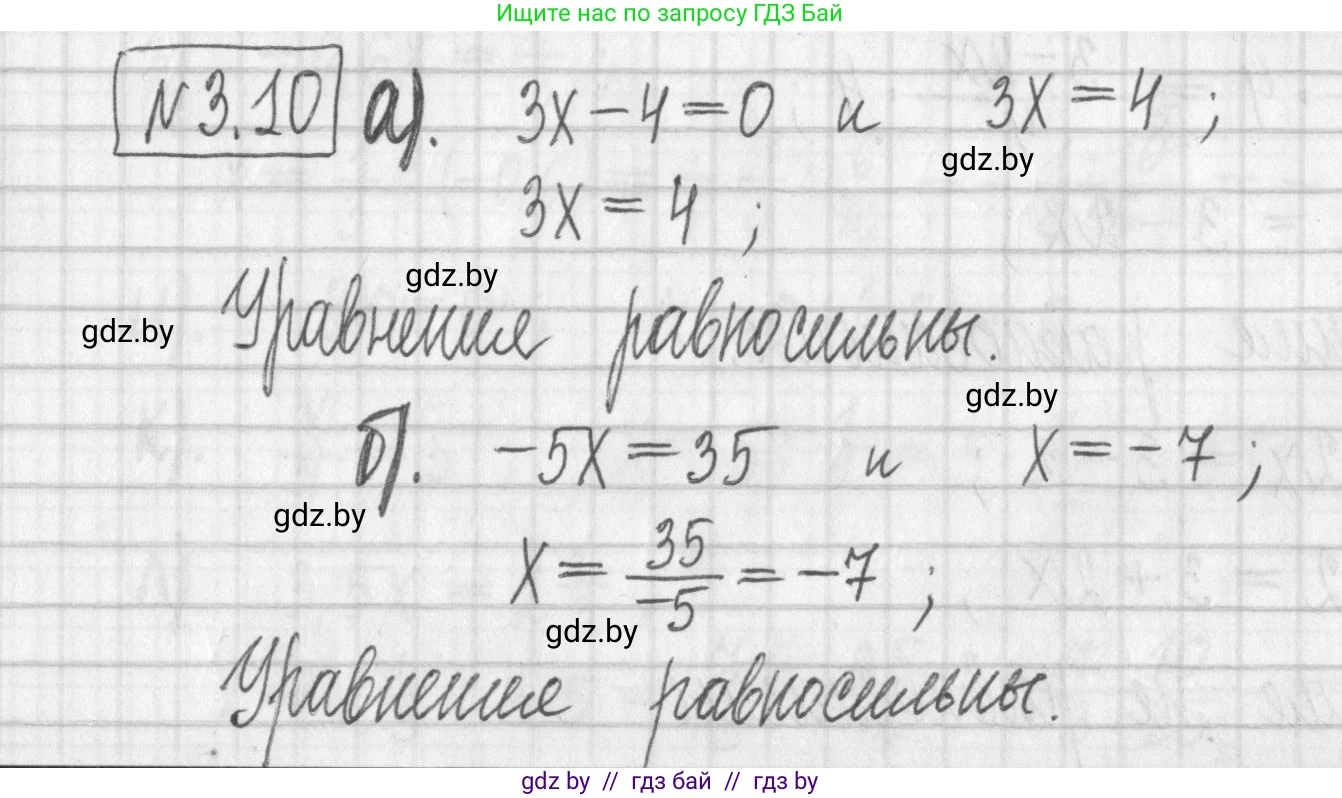 Ищите нас по запросу ГДЗ Бай
№ 3.10 а). 3x − 4 = 0 и 3x = 4 ;
gdz.by
3x = 4 ;
gdz.by
Уравнения равносильны.
gdz.by
gdz.by
б). −5x = 35 и x = −7 ;
gdz.by
x = 35/−5 = −7 ;
gdz.by
Уравнения равносильны.
gdz by // гдз бай // гдз by